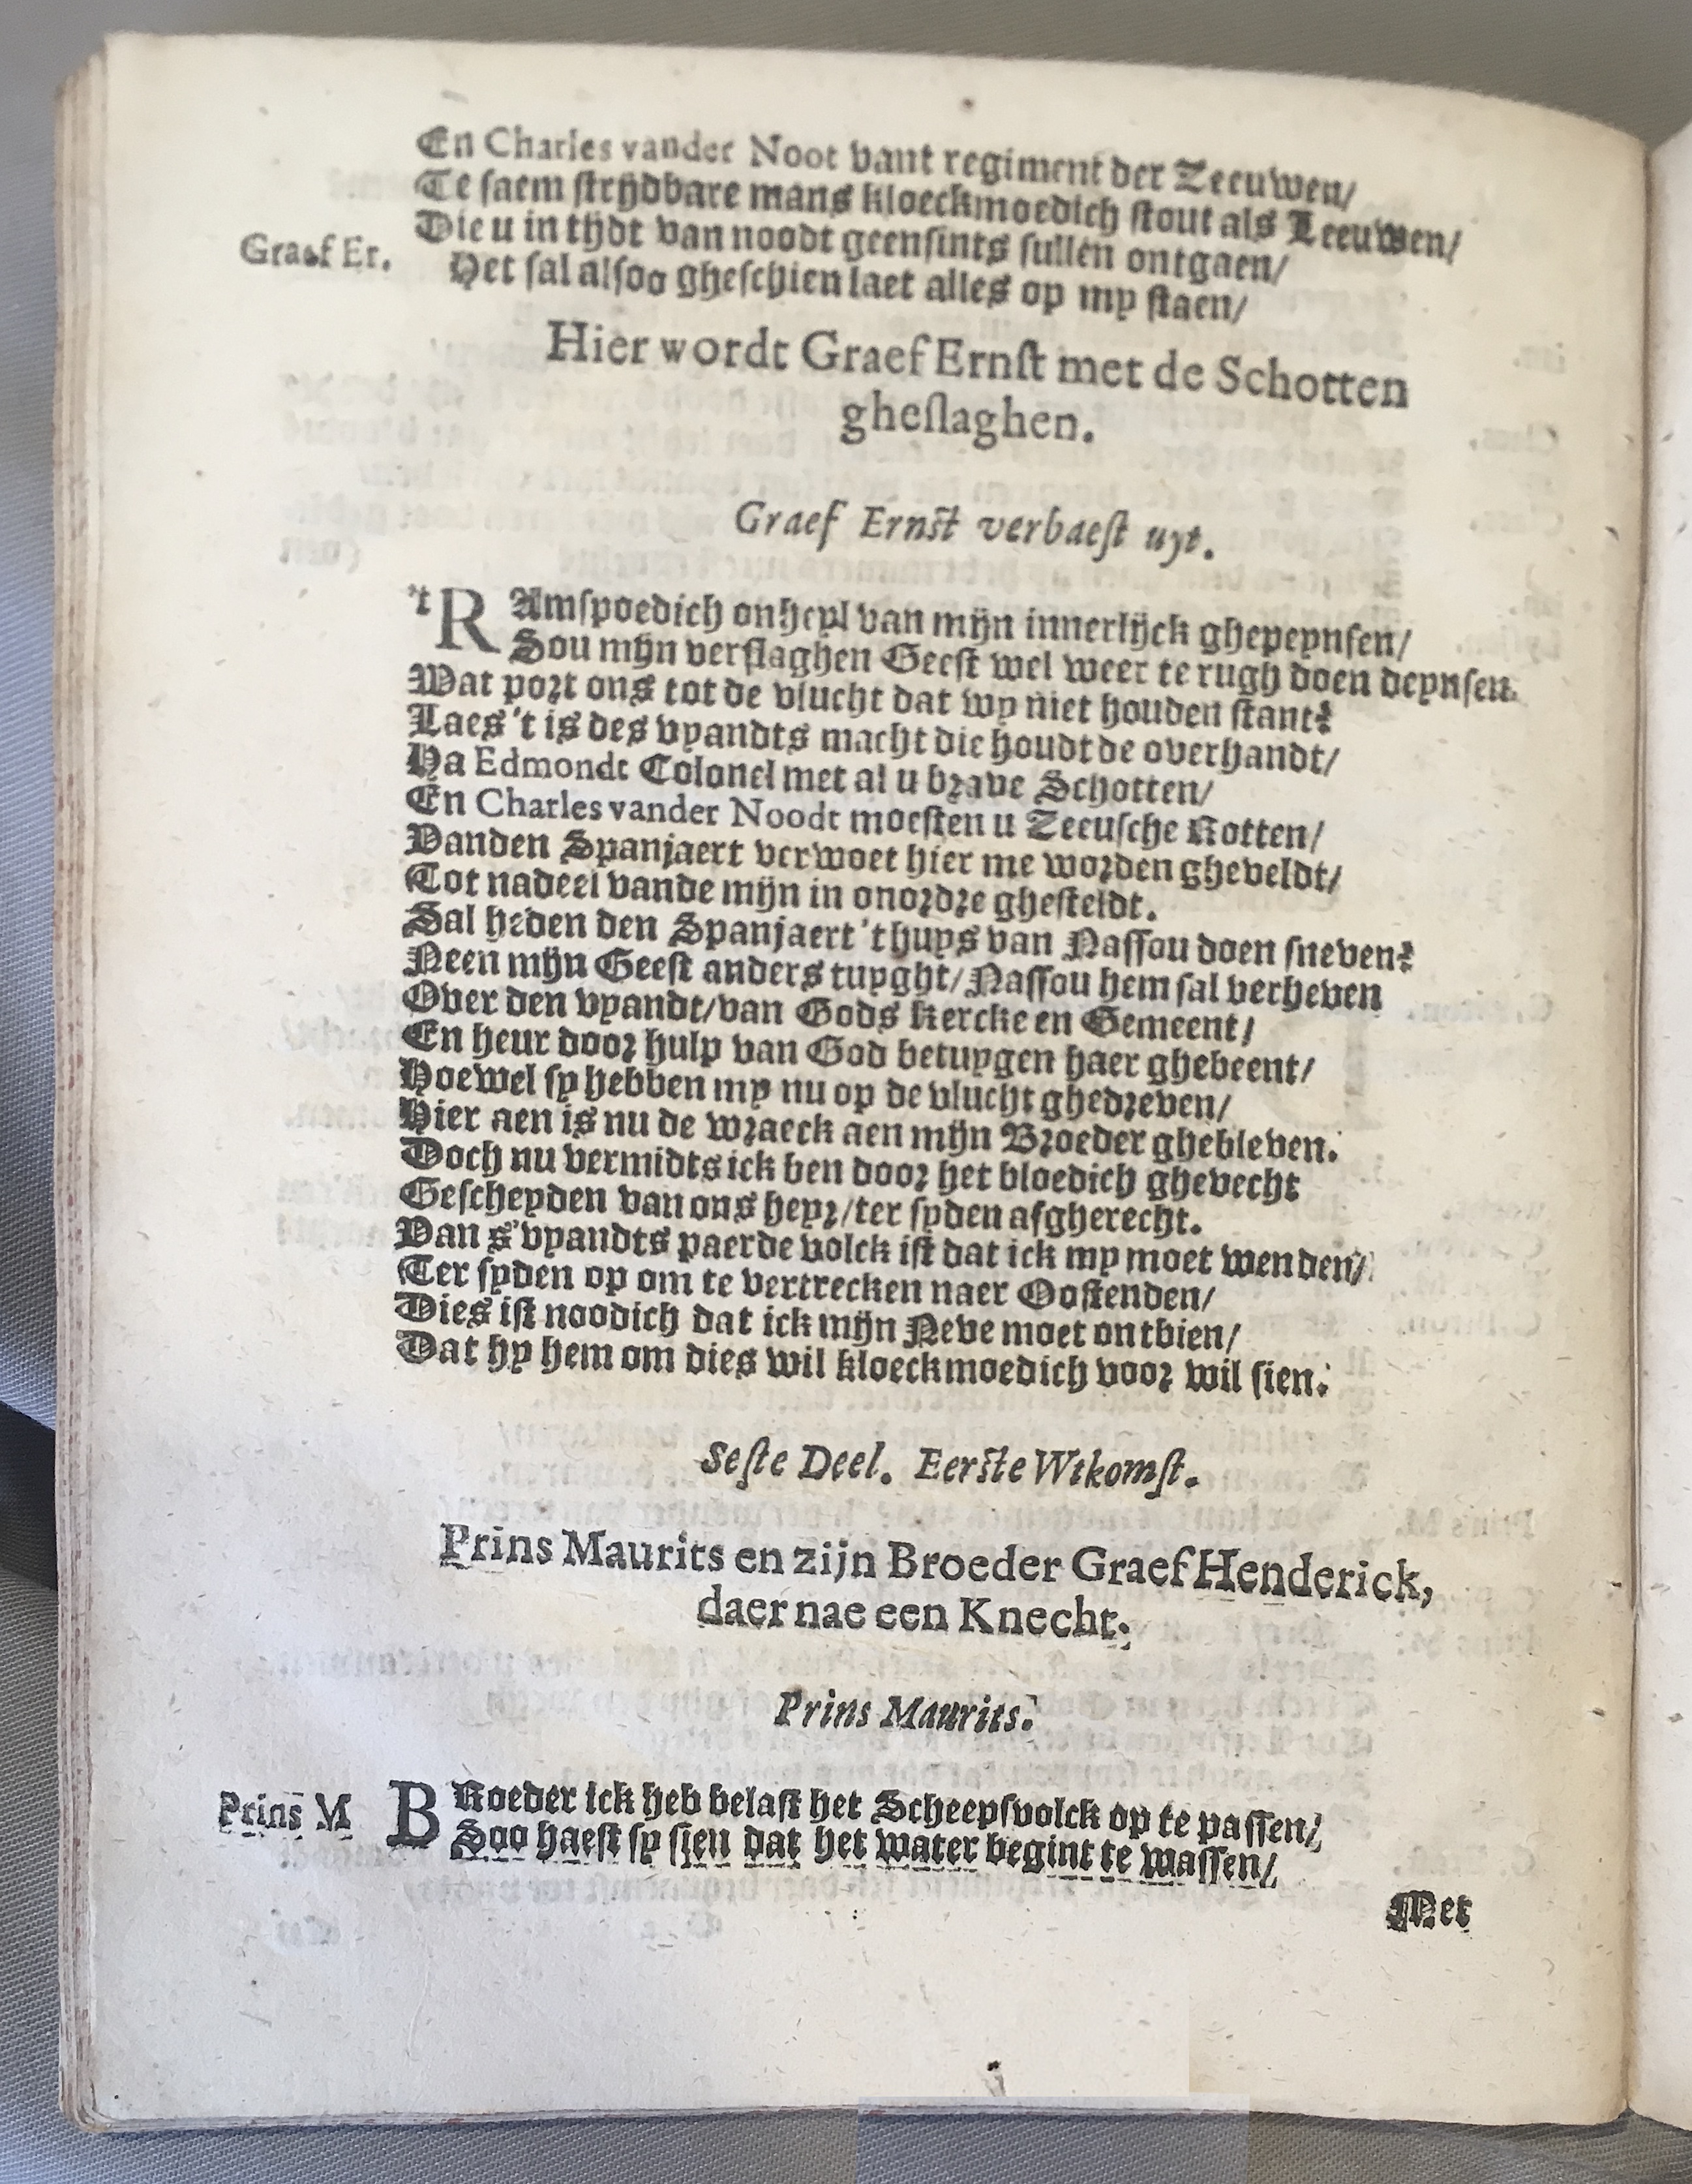 En Charles vander Noot vant regiment der Zeeuwen/
Te saem strijdbare mans kloeckmoedich stout als Leeuwen/
Die u in tijdt van noodt geensints sullen ontgaen/
Graef Er. Het sal alsoo gheschien laet alles op my staen/
Hier wordt Graef Ernst met de Schotten
gheslaghen.
Graef Ernst verbaest uyt.
'tRAmspoedich onheyl van mijn innerlijck ghepeynsen/
Sou mijn verslaghen Geest wel weer te rugh doen deynsen.
Wat port ons tot de vlucht dat wy niet houden stant?
Laes 't is des vyandts macht die houdt de overhandt/
Ha Edmondt Colonel met al u brave Schotten/
En Charles vander Noodt moesten u Zeeusche Rotten/
Vanden Spanjaert verwoet hier me worden gheveldt/
Tot nadeel vande mijn in onordre ghesteldt.
Sal heden den Spanjaert 't huys van Nassou doen sneven?
Neen mijn Geest anders tuyght/ Nassou hem sal verheven
Over den vyandt/ van Gods kercke en Gemeent/
En heur door hulp van God betuygen haer ghebeent/
Hoewel sy hebben my nu op de vlucht ghedreven/
Hier aen is nu de wraeck aen mijn Broeder ghebleven.
Doch nu vermidts ick ben door het bloedich ghevecht
Gescheyden van ons heyr/ ter syden afgherecht.
Van s'vyandts paerde volck ist dat ick my moet wenden/
Ter syden op om te vertrecken naer Oostenden/
Dies ist noodich dat ick mijn Neve moet ontbien/
Dat hy hem om dies wil kloeckmoedich voor wil sien.
Seste Deel. Eerste Wtkomst.
Prins Maurits en zijn Broeder Graef Henderick,
daer nae een Knecht.
Prins Maurits.
Prins M BRoeder ick heb belast het Scheepsvolck op te passen/
Soo haest sy sien dat het water begint te wassen/
Met